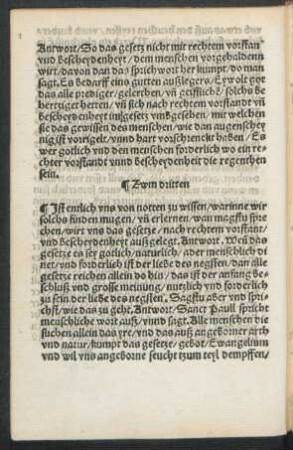 Antwort/So das gesetz nicht mit rechtem vorstan
vnd bescheydenheyt/dem menschen vorgehaldenn
wirt/davon dan das sprichwort her kumpt/do man
sagt. Es bedarff eins gutten außlegers/Ey wolt got
das alle prediger/gelerthen/vñ geistliche/solchs be
hertziget hetten/vñ sich nach rechtem vorstandt vñ
bescheydenheyt im gesetz vmbgesehen/mit welchen
sie das gewissen des menschen/wie dan augenschey
nig ist vorirgelt/vnnd hart vorschrenckt haben/Es
wer gotlich vnd den menschen forderlich wo ein re
chter vorstandt vnnd bescheydenheit die regenthen
sein.
¶ Zwm dritten
¶ Ist entlich vns von notten zu wissen/warinne wir
solchs finden mugen/vñ erlernen/wan magstu spre
chen/wirt vns das gesetze/nach rechtem vorstant/
vnd bescheydenheyt außgelegt. Antwort. Weñ das
gesetze es sey gotlich/naturlich/aber menschlich di
net/vnd forderlich ist der liebe des negsten/dan alle
gesetze reichen allein do hin/das ist der anfang be-
schluß vnd grosse meinung/nutzlich vnd forderlich
zu sein der liebe des negsten. Sagstu aber vnd spri-
chst/wie das zu geht. Antwort/Sanct Paull spricht
menschliche wort auß/vnnd sagt. Alle menschen die
suchen allein das yre/vnd das auß angeborner arth
vnd natur/kumpt das gesetze/gebot/Ewangelium
vnd wil vns angeborne seucht zum teyl dempffen/